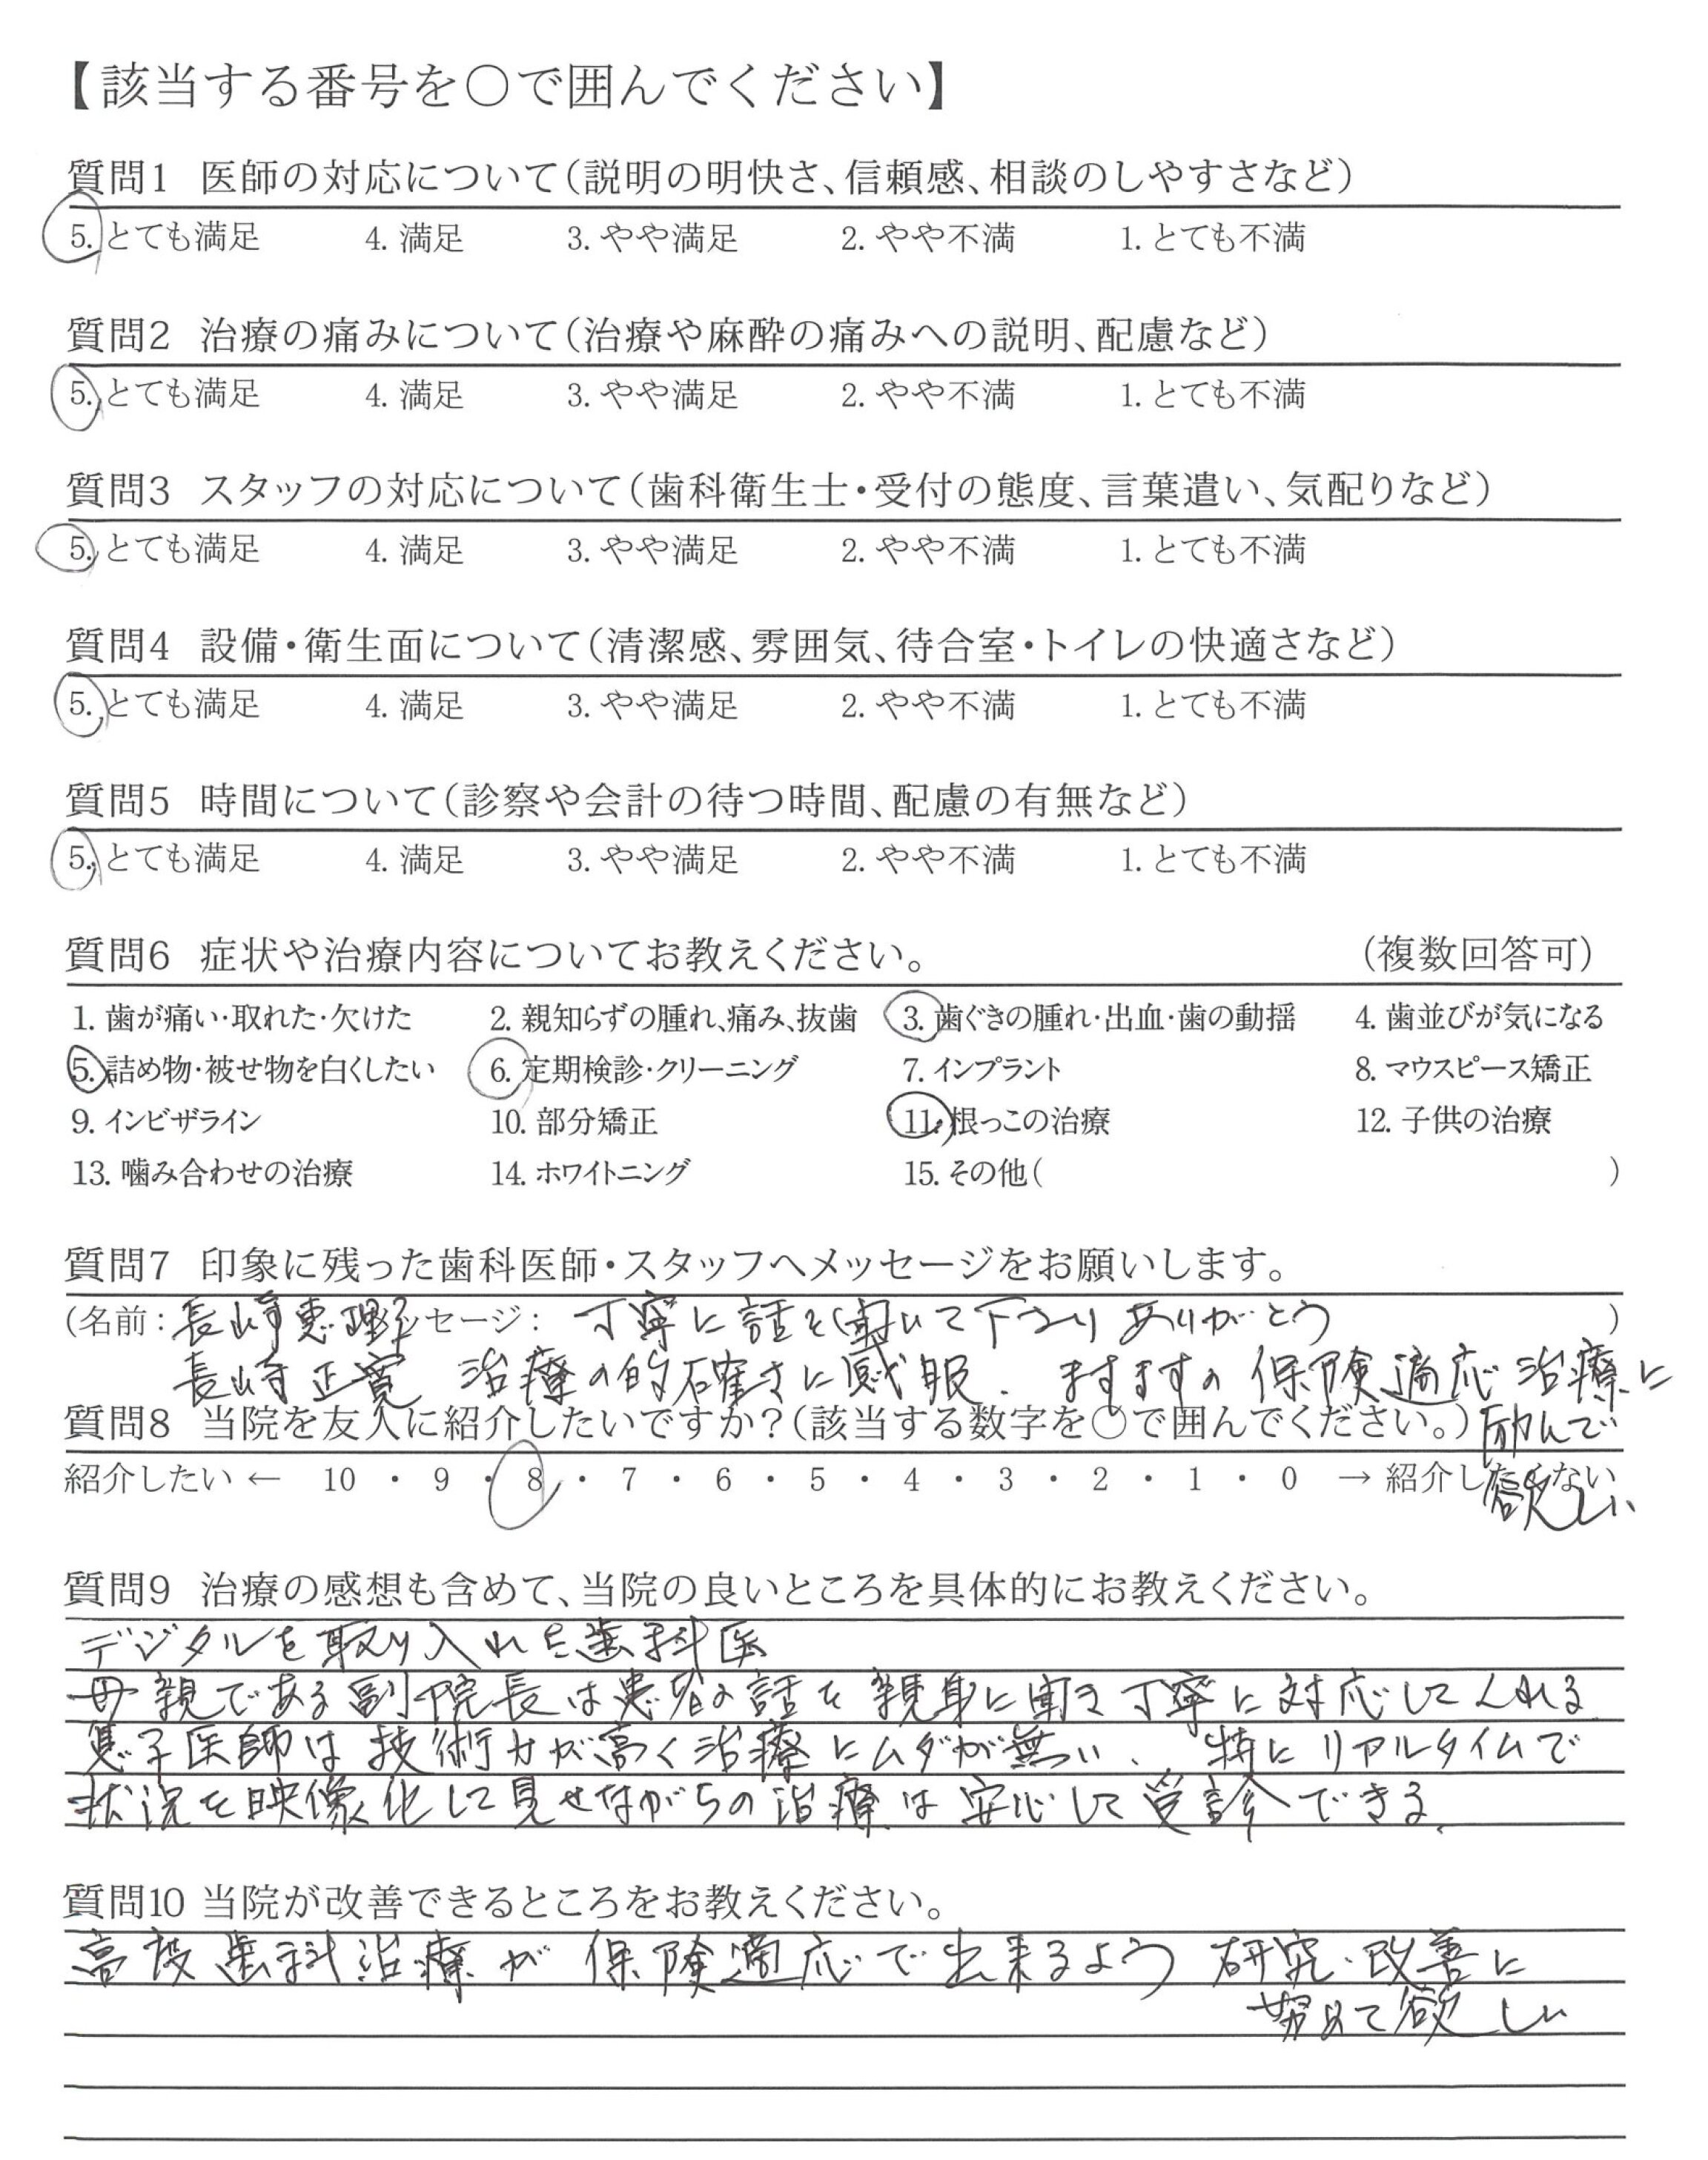 【該当する番号を○で囲んでください】
質問1 医師の対応について(説明の明快さ、信頼感、相談のしやすさなど)
5. とても満足 4. 満足 3. やや満足 2. やや不満 1. とても不満
質問2 治療の痛みについて(治療や麻酔の痛みへの説明、配慮など)
5. とても満足 4. 満足 3. やや満足 2. やや不満 1. とても不満
質問3 スタッフの対応について(歯科衛生士・受付の態度、言葉遣い、気配りなど)
5. とても満足 4. 満足 3. やや満足 2. やや不満 1. とても不満
質問4 設備・衛生面について(清潔感、雰囲気、待合室・トイレの快適さなど)
5. とても満足 4. 満足 3. やや満足 2. やや不満 1. とても不満
質問5 時間について(診察や会計の待つ時間、配慮の有無など)
5. とても満足 4. 満足 3. やや満足 2. やや不満 1. とても不満
質問6 症状や治療内容についてお教えください。 (複数回答可)
1. 歯が痛い・取れた・欠けた 2. 親知らずの腫れ、痛み、抜歯 3. 歯ぐきの腫れ・出血・歯の動揺 4. 歯並びが気になる
5. 詰め物・被せ物を白くしたい 6. 定期検診・クリーニング 7. インプラント 8. マウスピース矯正
9. インビザライン 10. 部分矯正 11. 根っこの治療 12. 子供の治療
13. 噛み合わせの治療 14. ホワイトニング 15. その他( )
質問7 印象に残った歯科医師・スタッフへメッセージをお願いします。
(名前: 長崎恵理子 メッセージ: 丁寧に話を聞いて下さり ありがとう )
長崎正寛 治療の的確さに感服. ますますの 保険適応治療に
励んで
欲しい
質問8 当院を友人に紹介したいですか?(該当する数字を○で囲んでください。)
紹介したい ← 10 ・ 9 ・ 8 ・ 7 ・ 6 ・ 5 ・ 4 ・ 3 ・ 2 ・ 1 ・ 0 → 紹介したくない
質問9 治療の感想も含めて、当院の良いところを具体的にお教えください。
デジタルを取り入れた歯科医
母親である副院長は患者の話を親身に聞き丁寧に対応してくれる
息子医師は技術力が高く治療にムダが無い、特にリアルタイムで
状況を映像化して見せながらの治療は安心して受診できる、
質問10 当院が改善できるところをお教えください。
高度歯科治療が保険適応で出来るよう 研究・改善に
努めて欲しい